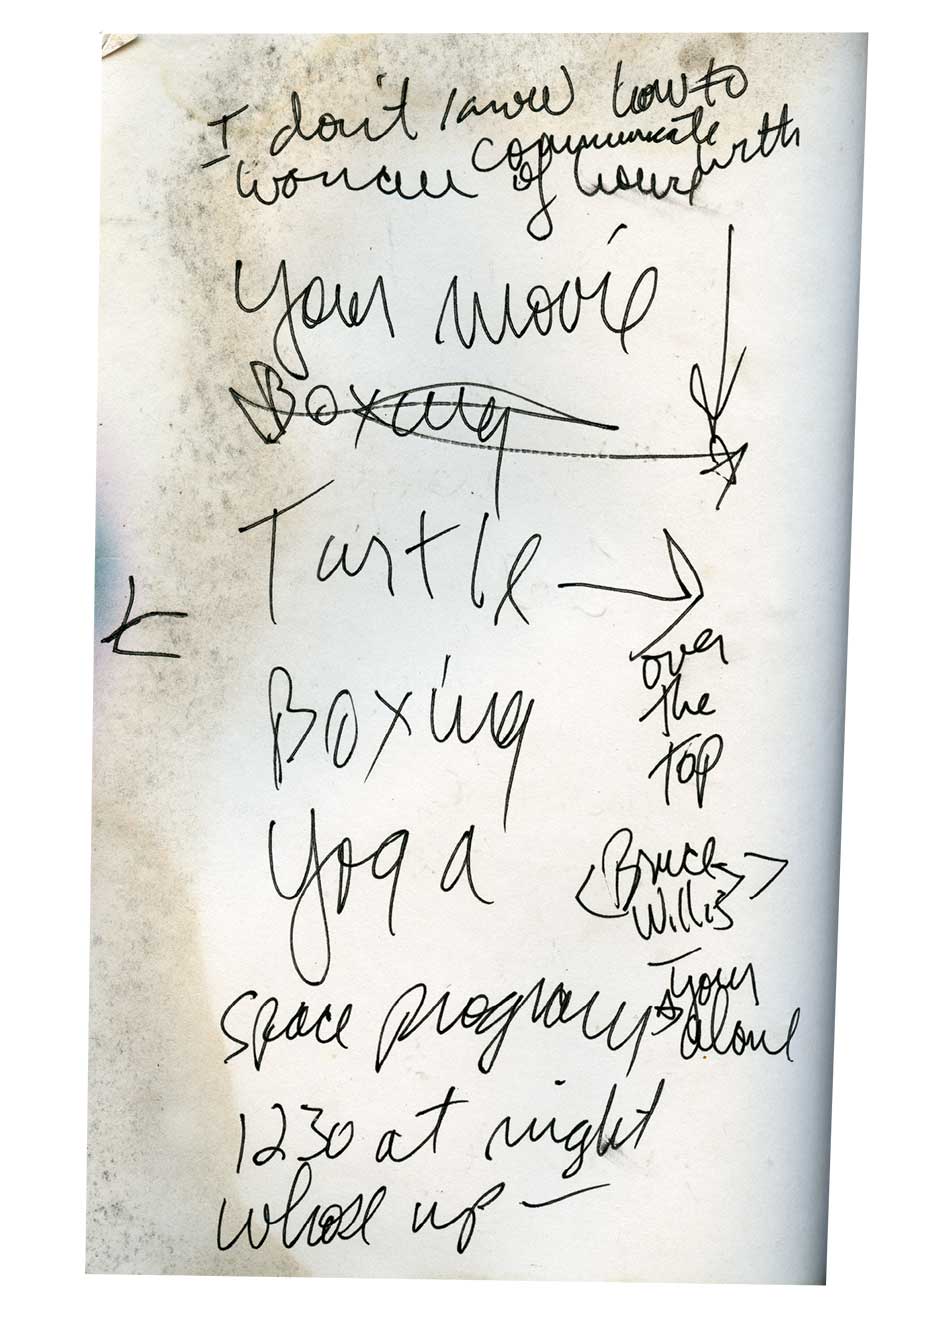 I don't know how to
communicate with
women of
Your movie
Boxing
Turtle
over
the
top
Boxing
Yoga
Bruce
Willis
space program
your
alone
1230 at night
whose up —